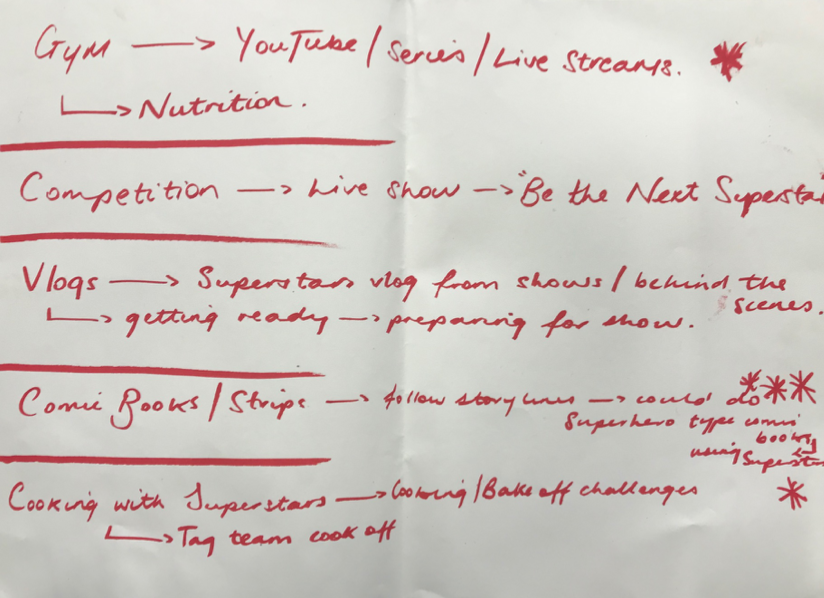 Gym → YouTube / Series / Live Streams. *
↳ Nutrition.
Competition → Live show → "Be the Next Superstar
Vlogs → Superstars vlog from shows / behind the
scenes.
↳ getting ready → preparing for show.
Comic Books / Strips → follow storylines → could do ***
Superhero type comic
books
using Superstars
Cooking with Superstars → Cooking / Bake off challenges *
↳ Tag team cook off